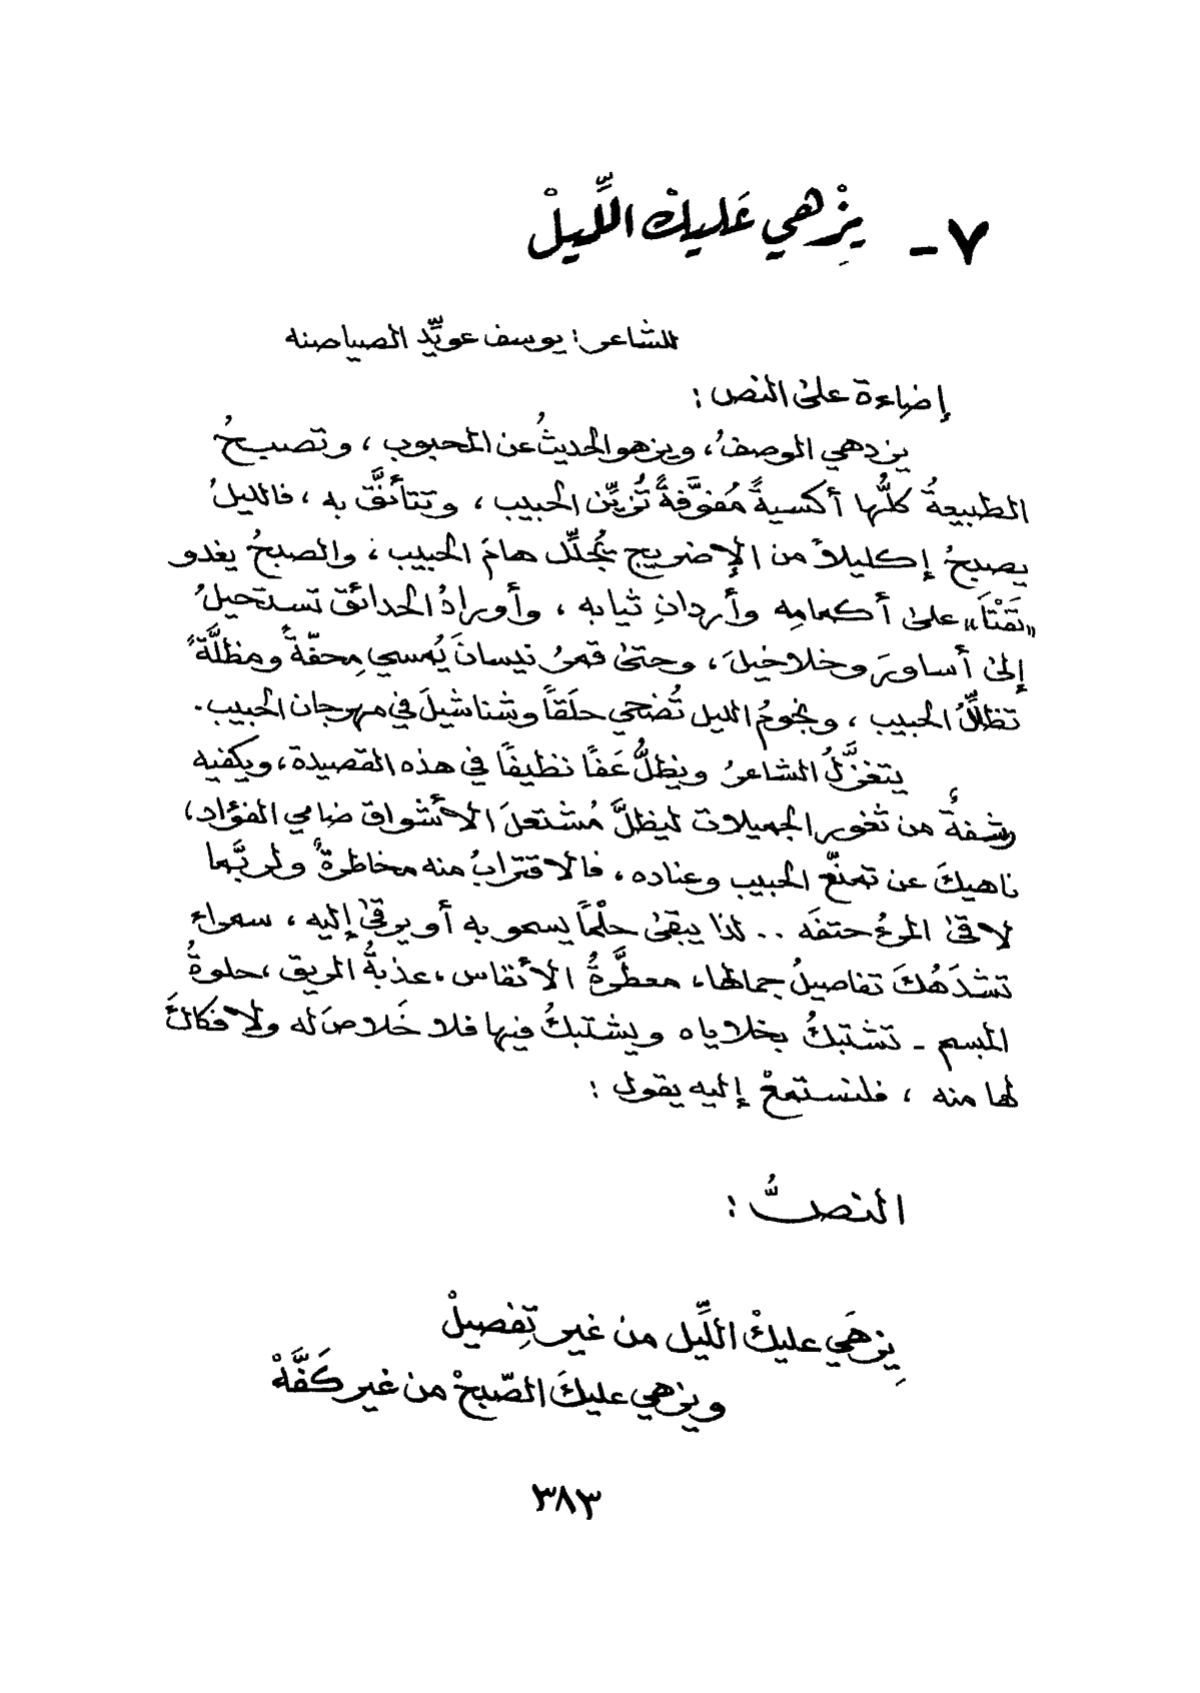 ٧ - يِزْهي عَليكْ اللِّيلْ
للشاعر: يوسف عويِّد الصياصنه
إضاءة على النص:
يزدهي الوصفُ، ويزهو الحديثُ عن المحبوب، وتصبحُ
الطبيعةُ كلُّها أكسيةً مُفوَّفةً تُزيِّن الحبيب، وتتأنَّق به، فالليلُ
يصبحُ إكليلاً من الإضريج يُجلِّل هامَ الحبيب، والصبحُ يغدو
"تَفْتَا" على أكمامِه وأردانِ ثيابه، وأورادُ الحدائق تستحيلُ
إلى أساورَ وخلاخيلَ، وحتى قمرُ نيسانَ يُمسي مِحفّةً ومظلَّةً
تظلِّلُ الحبيب، ونجومُ الليل تُضحي حلَقاً وشناشيلَ في مهرجان الحبيب.
يتغزَّلُ الشاعرُ ويظلُّ عَفًا نظيفًا في هذه القصيدة، ويكفيه
رشفةٌ من ثغور الجميلات ليظلَّ مُشتعلَ الأشواق ضامي الفؤاد،
ناهيكَ عن تمنّع الحبيب وعناده، فالاقترابُ منه مخاطرةٌ ولربَّما
لاقى المرءُ حتفَه .. لذا يبقى حلْماً يسمو به أو يرقى إليه، سمراء
تشدَهُكَ تفاصيلُ جمالها، معطَّرةُ الأنفاس، عذبةُ الريق، حلوةُ
المبسم - تشتبكُ بخلاياه ويشتبكُ فيها فلا خَلاصَ له ولا فكاكَ
لها منه، فلنستمعْ إليه يقول:
النصُّ:
يِزهَي عليكْ اللِّيل من غير تِفصيلْ
ويزهي عليكَ الصّبحْ من غير كَفَّهْ
٣٨٣